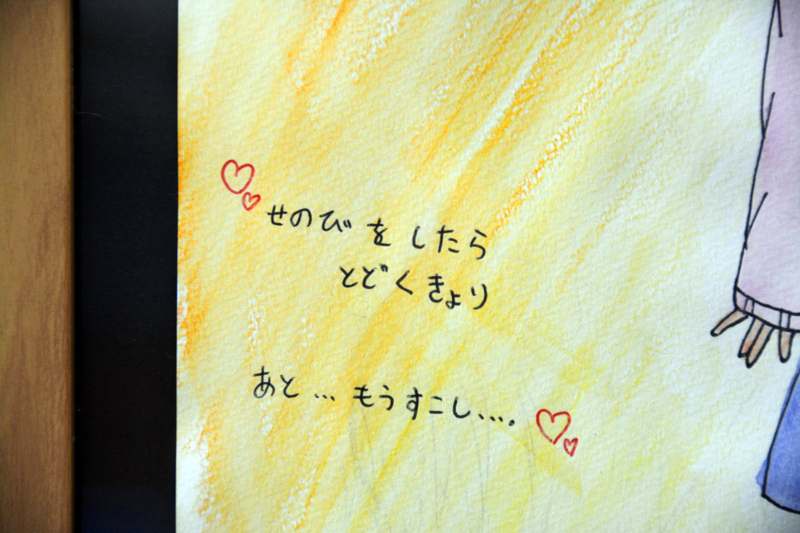 せのび を したら
とどくきょり
あと... もうすこし....